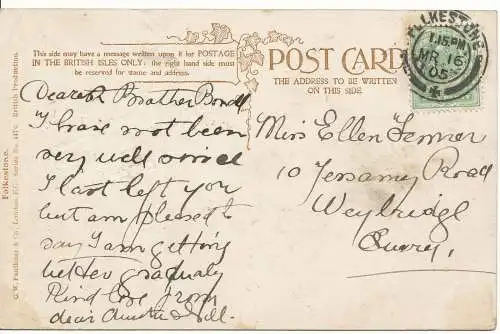 This side may have a message written upon it for POSTAGE
IN THE BRITISH ISLES ONLY: the right hand side must
be reserved for stamp and address.
POST CARD
THE ADDRESS TO BE WRITTEN
ON THIS SIDE.
FOLKESTONE
1.15 PM
MR 16
05
Dearest Brother
I have not been
very well since
I last left you
but am pleased to
say I am getting
better gradualy
Kind love from
dear Auntie & Nell.
Miss Ellen
10 Jessamy Road
Weybridge
Surrey.
Folkestone.
G. W. Faulkner & Co., London, E.C. Series No. British Production.